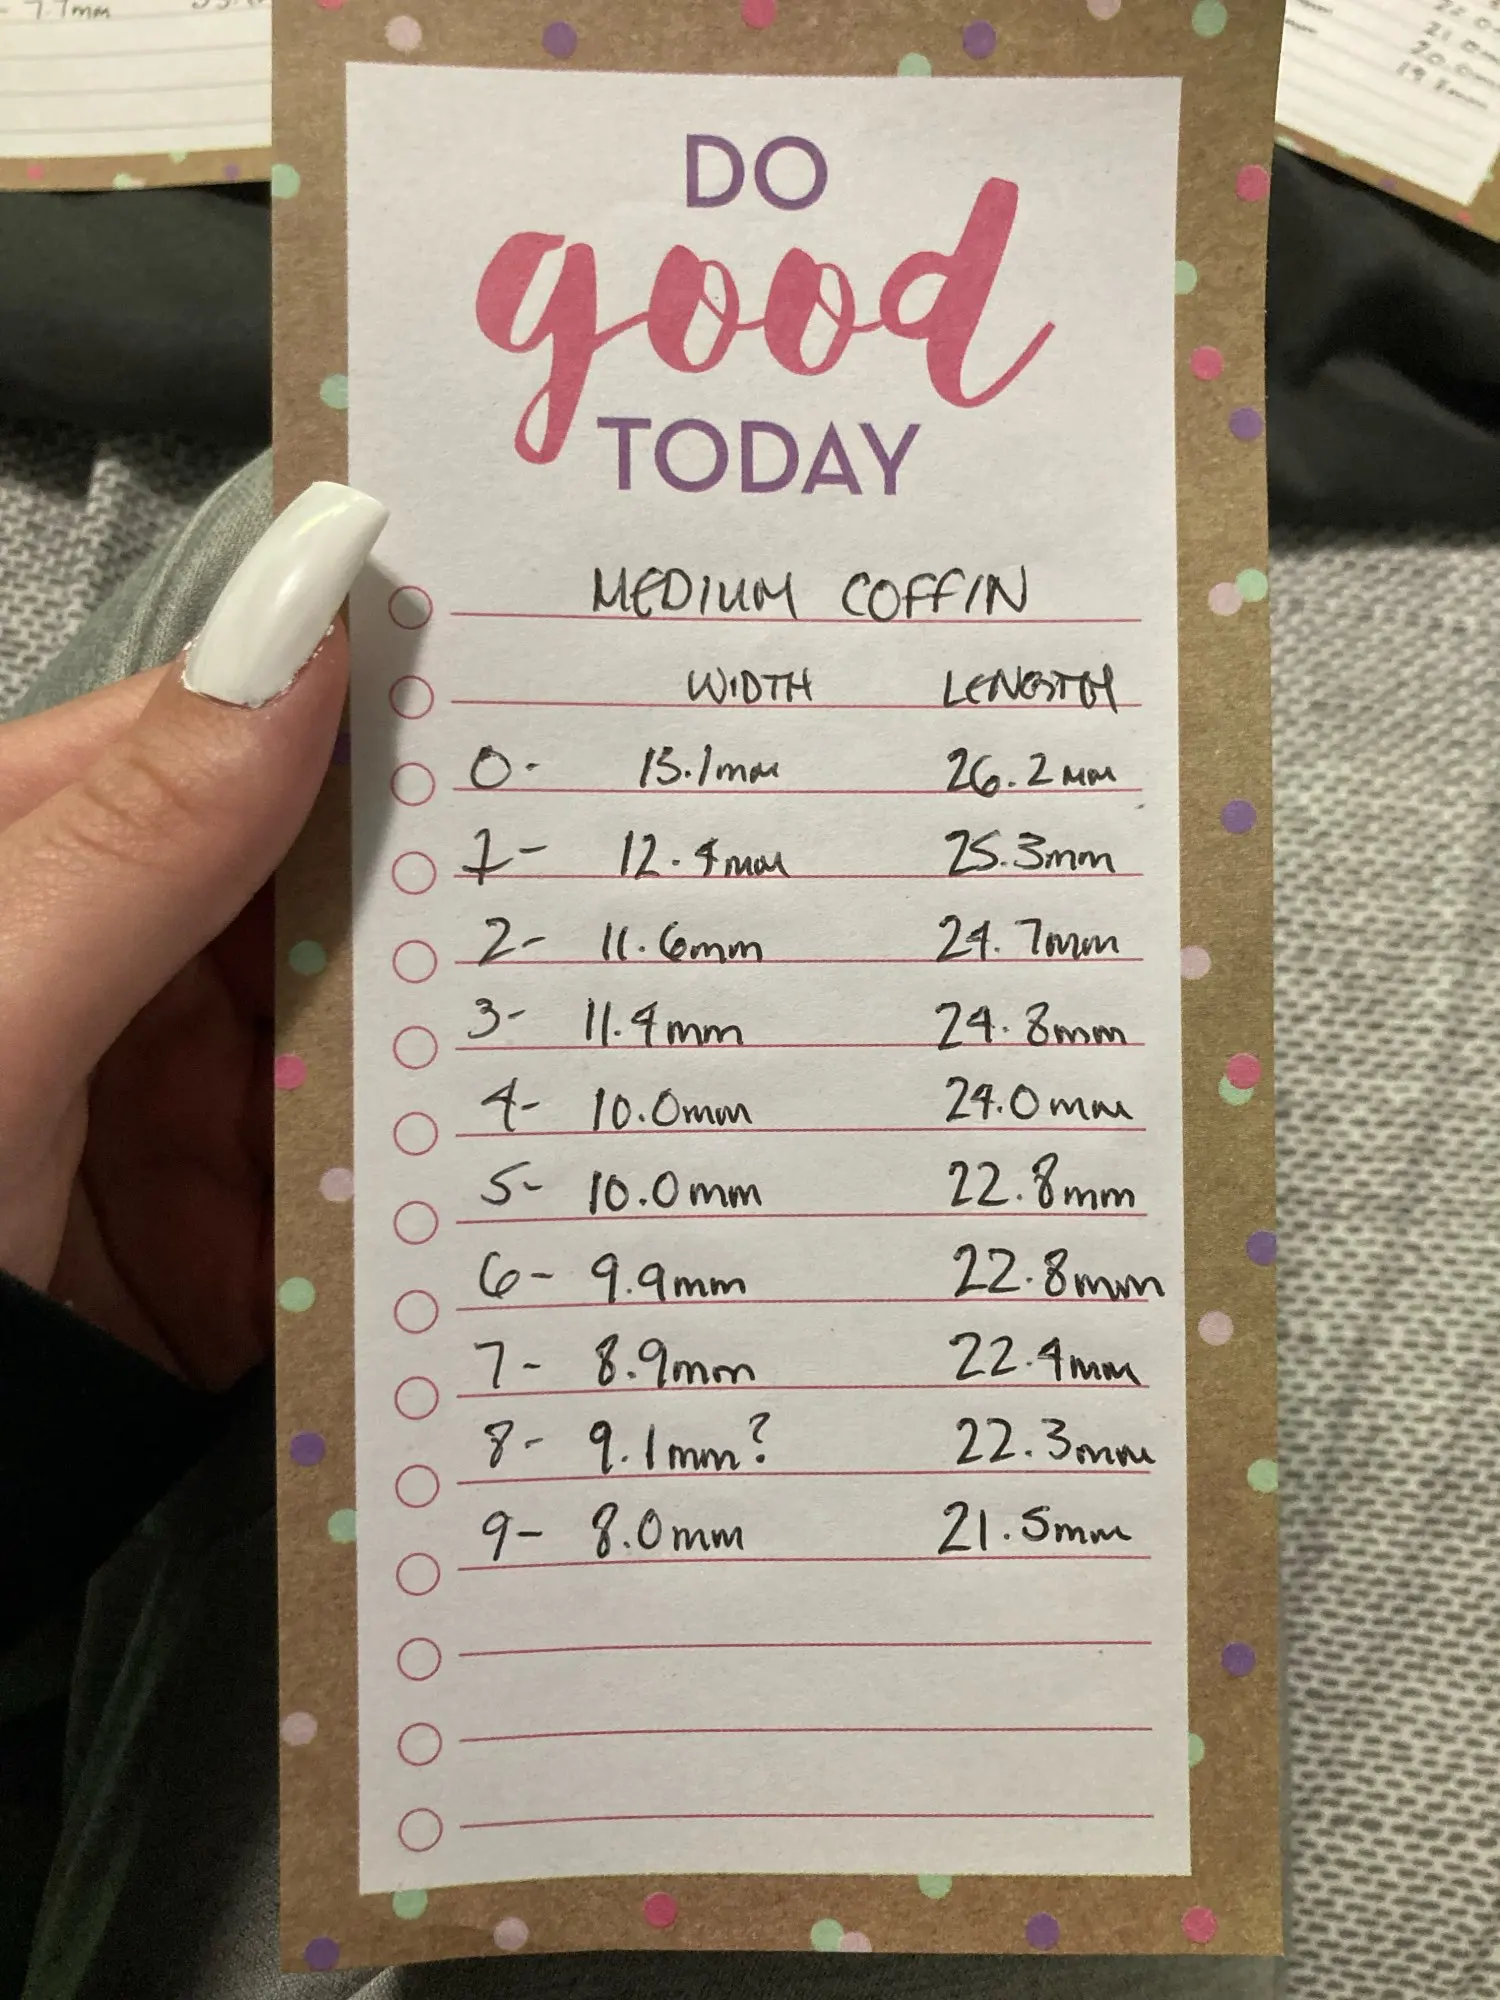 7.7mm
DO
good
TODAY
MEDIUM COFFIN
WIDTH LENGTH
0- 13.1mm 26.2mm
1- 12.4mm 25.3mm
2- 11.6mm 24.7mm
3- 11.4mm 24.8mm
4- 10.0mm 24.0mm
5- 10.0mm 22.8mm
6- 9.9mm 22.8mm
7- 8.9mm 22.4mm
8- 9.1mm? 22.3mm
9- 8.0mm 21.5mm